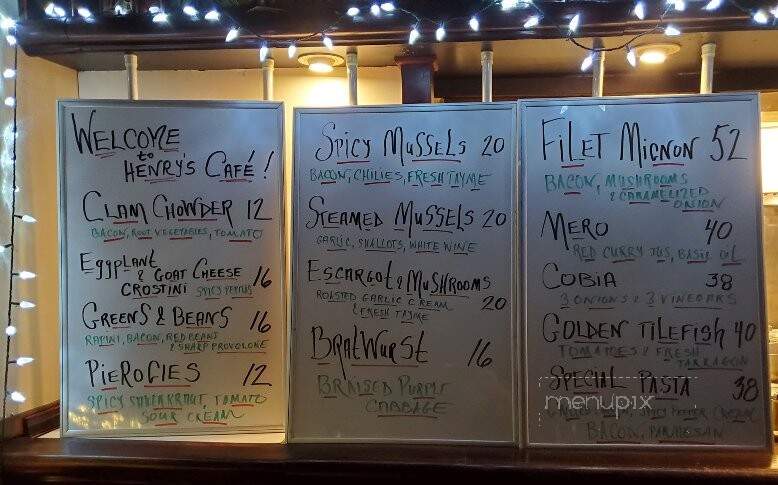 WELCOME
to
HENRY'S CAFÉ!
CLAM CHOWDER 12
BACON, ROOT VEGETABLES, TOMATO
EggplANT
& GOAT CHEESE
CROSTINI 16
SPICY
GREENS & BEANS 16
RAPINI, BACON, RED BEANS
& SHARP PROVOLONE
PIEROGIES 12
SPICY SAUERKRAUT, TOMATO
SOUR CREAM
SPICY MUSSELS 20
BACON, CHILIES, FRESH THYME
STEAMED MUSSELS 20
GARLIC, SHALLOTS, WHITE WINE
ESCARGOT & MUSHROOMS
ROASTED GARLIC CREAM 20
& FRESH THYME
BRATWURST 16
BRAISED PURPLE
CABBAGE
FILET MIGNON 52
BACON, MUSHROOMS
& CARAMELIZED
ONION
MERO 40
RED CURRY JUS, BASIL OIL
COBIA 38
3 ONIONS & 3 VINEGARS
GOLDEN TILEFISH 40
TOMATOES & FRESH
TARRAGON
SPECIAL PASTA 38
CREAM
BACON, PARMESAN
menupix